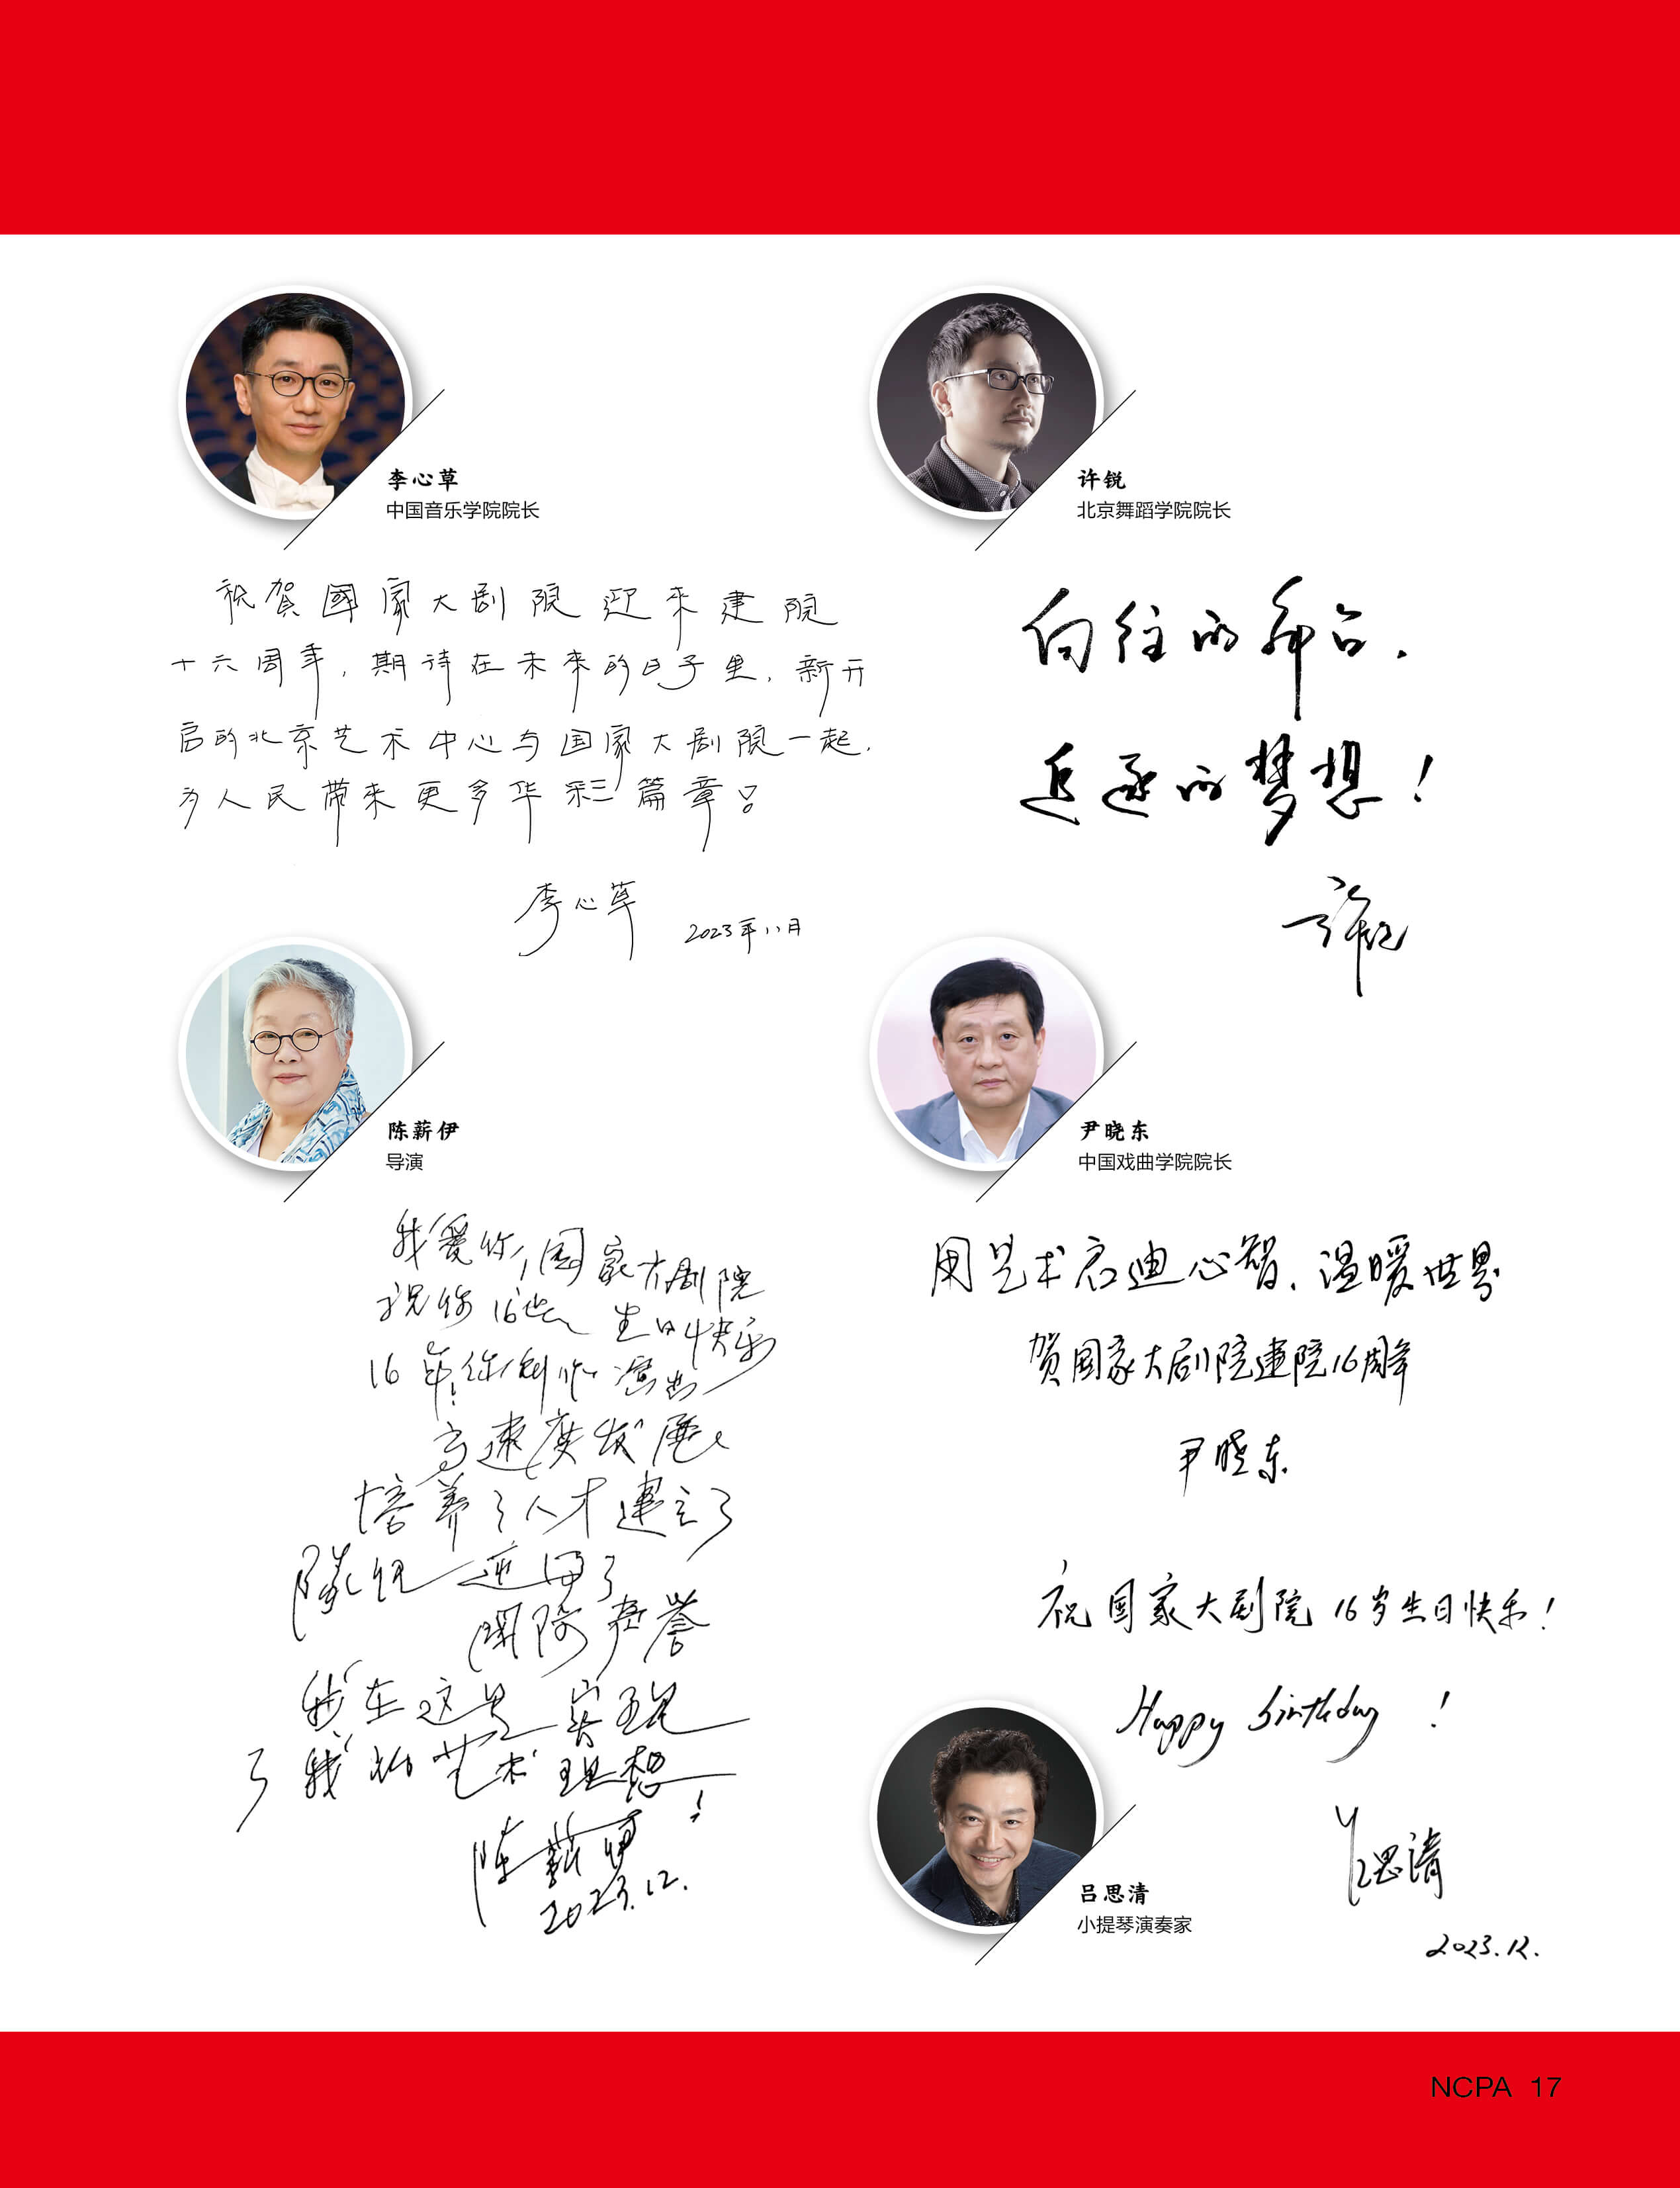 李心草
中国音乐学院院长
祝賀國家大剧院迎来建院
十六周年，期待在未来的日子里，新开
启的北京艺术中心与国家大剧院一起，
为人民带来更多华彩篇章。
李心草 2023年11月
许锐
北京舞蹈学院院长
向往的舞台，
追逐的梦想！
许锐
陈薪伊
导演
我爱你，国家大剧院
祝你16岁 生日快乐
16年！你创作演出
高速度发展
培养了人才建立了
队伍 赢得了
国际声誉
我在这里实现
了我的艺术理想！
陈薪伊
2023.12.
尹晓东
中国戏曲学院院长
用艺术启迪心智、温暖世界
贺国家大剧院建院16周年
尹晓东
祝国家大剧院16岁生日快乐！
Happy birthday！
吕思清
2023.12.
吕思清
小提琴演奏家
NCPA 17